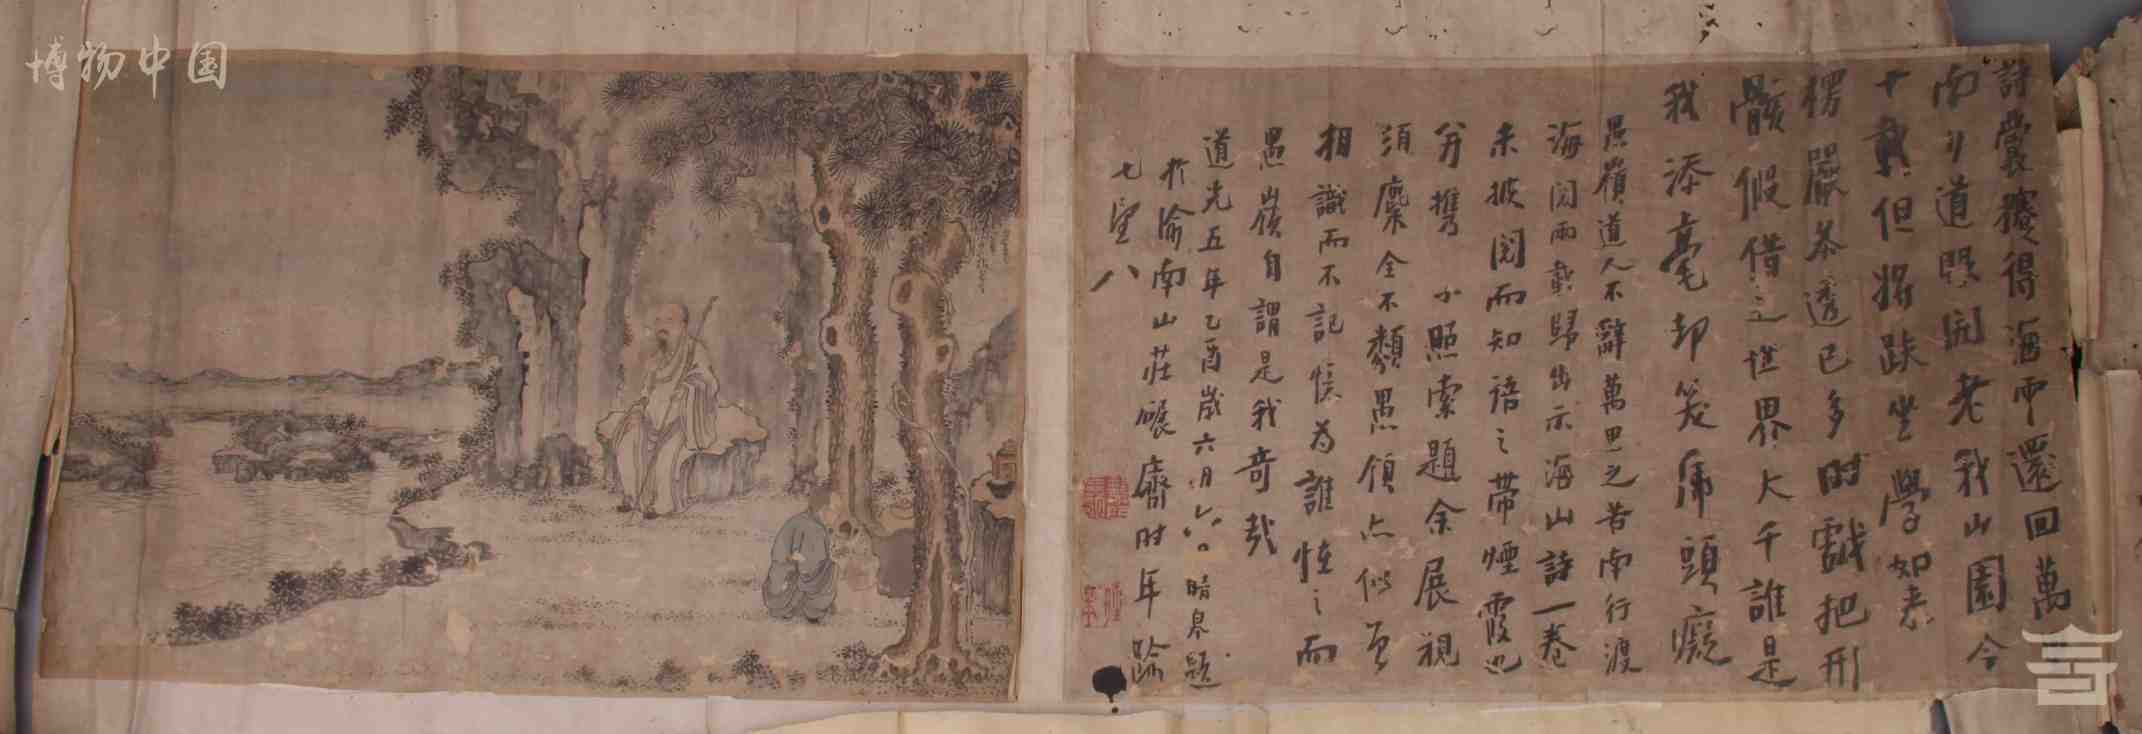 詩囊攜得海雨還回萬
南以道興闌老我山園今
十載但將趺坐學如來
楞嚴參透已多時戲把形
骸假借之世界大千誰是
我添毫却笑虎頭癡
愚嶺道人不辭萬里之苦南行渡
海閱兩載歸出示海山詩一卷
未披閱而知語之帶煙霞也
并攜小照索題余展視
須麋全不類愚嶺亦似曾
相識而不記憶為誰怪之而
愚嶺自謂是我奇哉
道光五年乙酉歲六月 晴皋題
於渝南山莊碾齋時年踰
七望八
博物中国